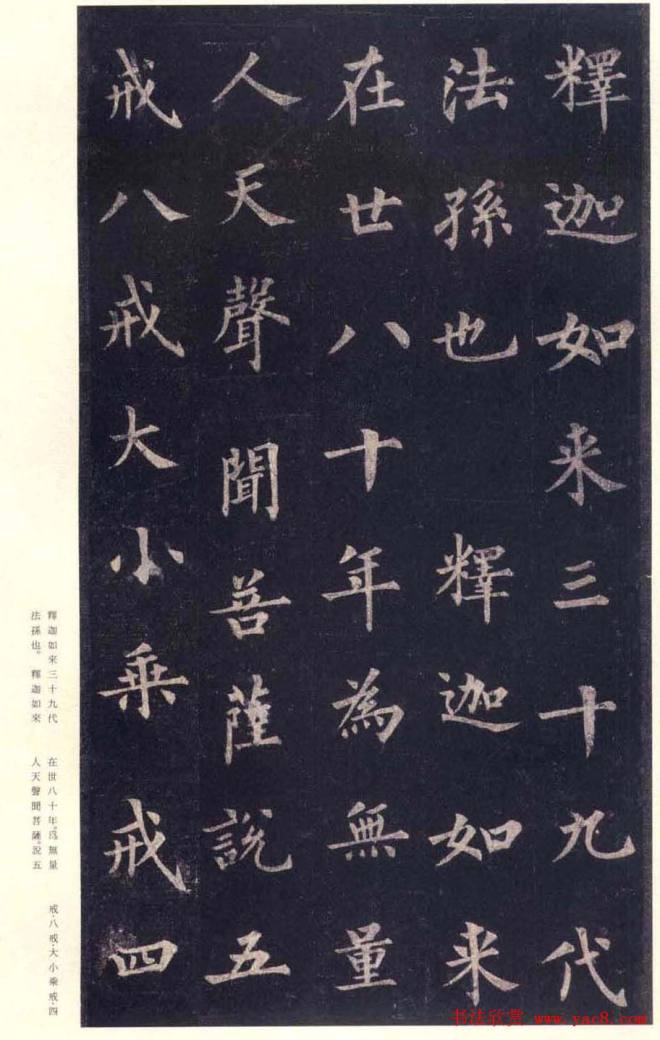 釋迦如来三十九代
法孫也釋迦如来
在世八十年為無量
人天聲聞菩薩說五
戒八戒大小乗戒四
釋迦如來三十九代
法孫也。釋迦如來
在世八十年。爲無量
人天聲聞菩薩。說五
戒·八戒·大小乘戒·四
书法欣赏 www.yac8.com